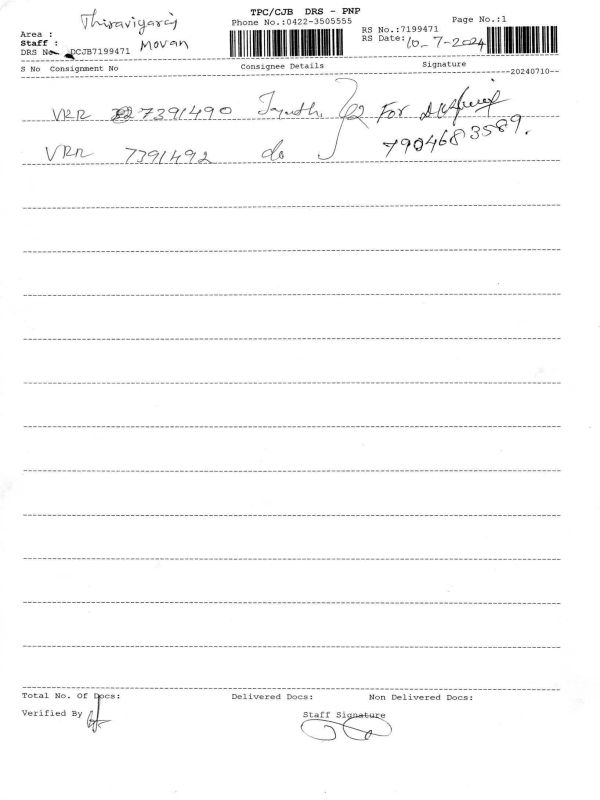 TPC/CJB DRS - PNP
Thiraviyaraj
Phone No.:0422-3505555
Page No.:1
Area :
RS No.:7199471
Staff : Movan
RS Date: 10-7-2024
DRS No DCJB7199471
S No Consignment No Consignee Details Signature
--20240710--
VRR 7391490 For
VRR 7391492 do 7904683589.
Total No. Of Docs: Delivered Docs: Non Delivered Docs:
Verified By Staff Signature